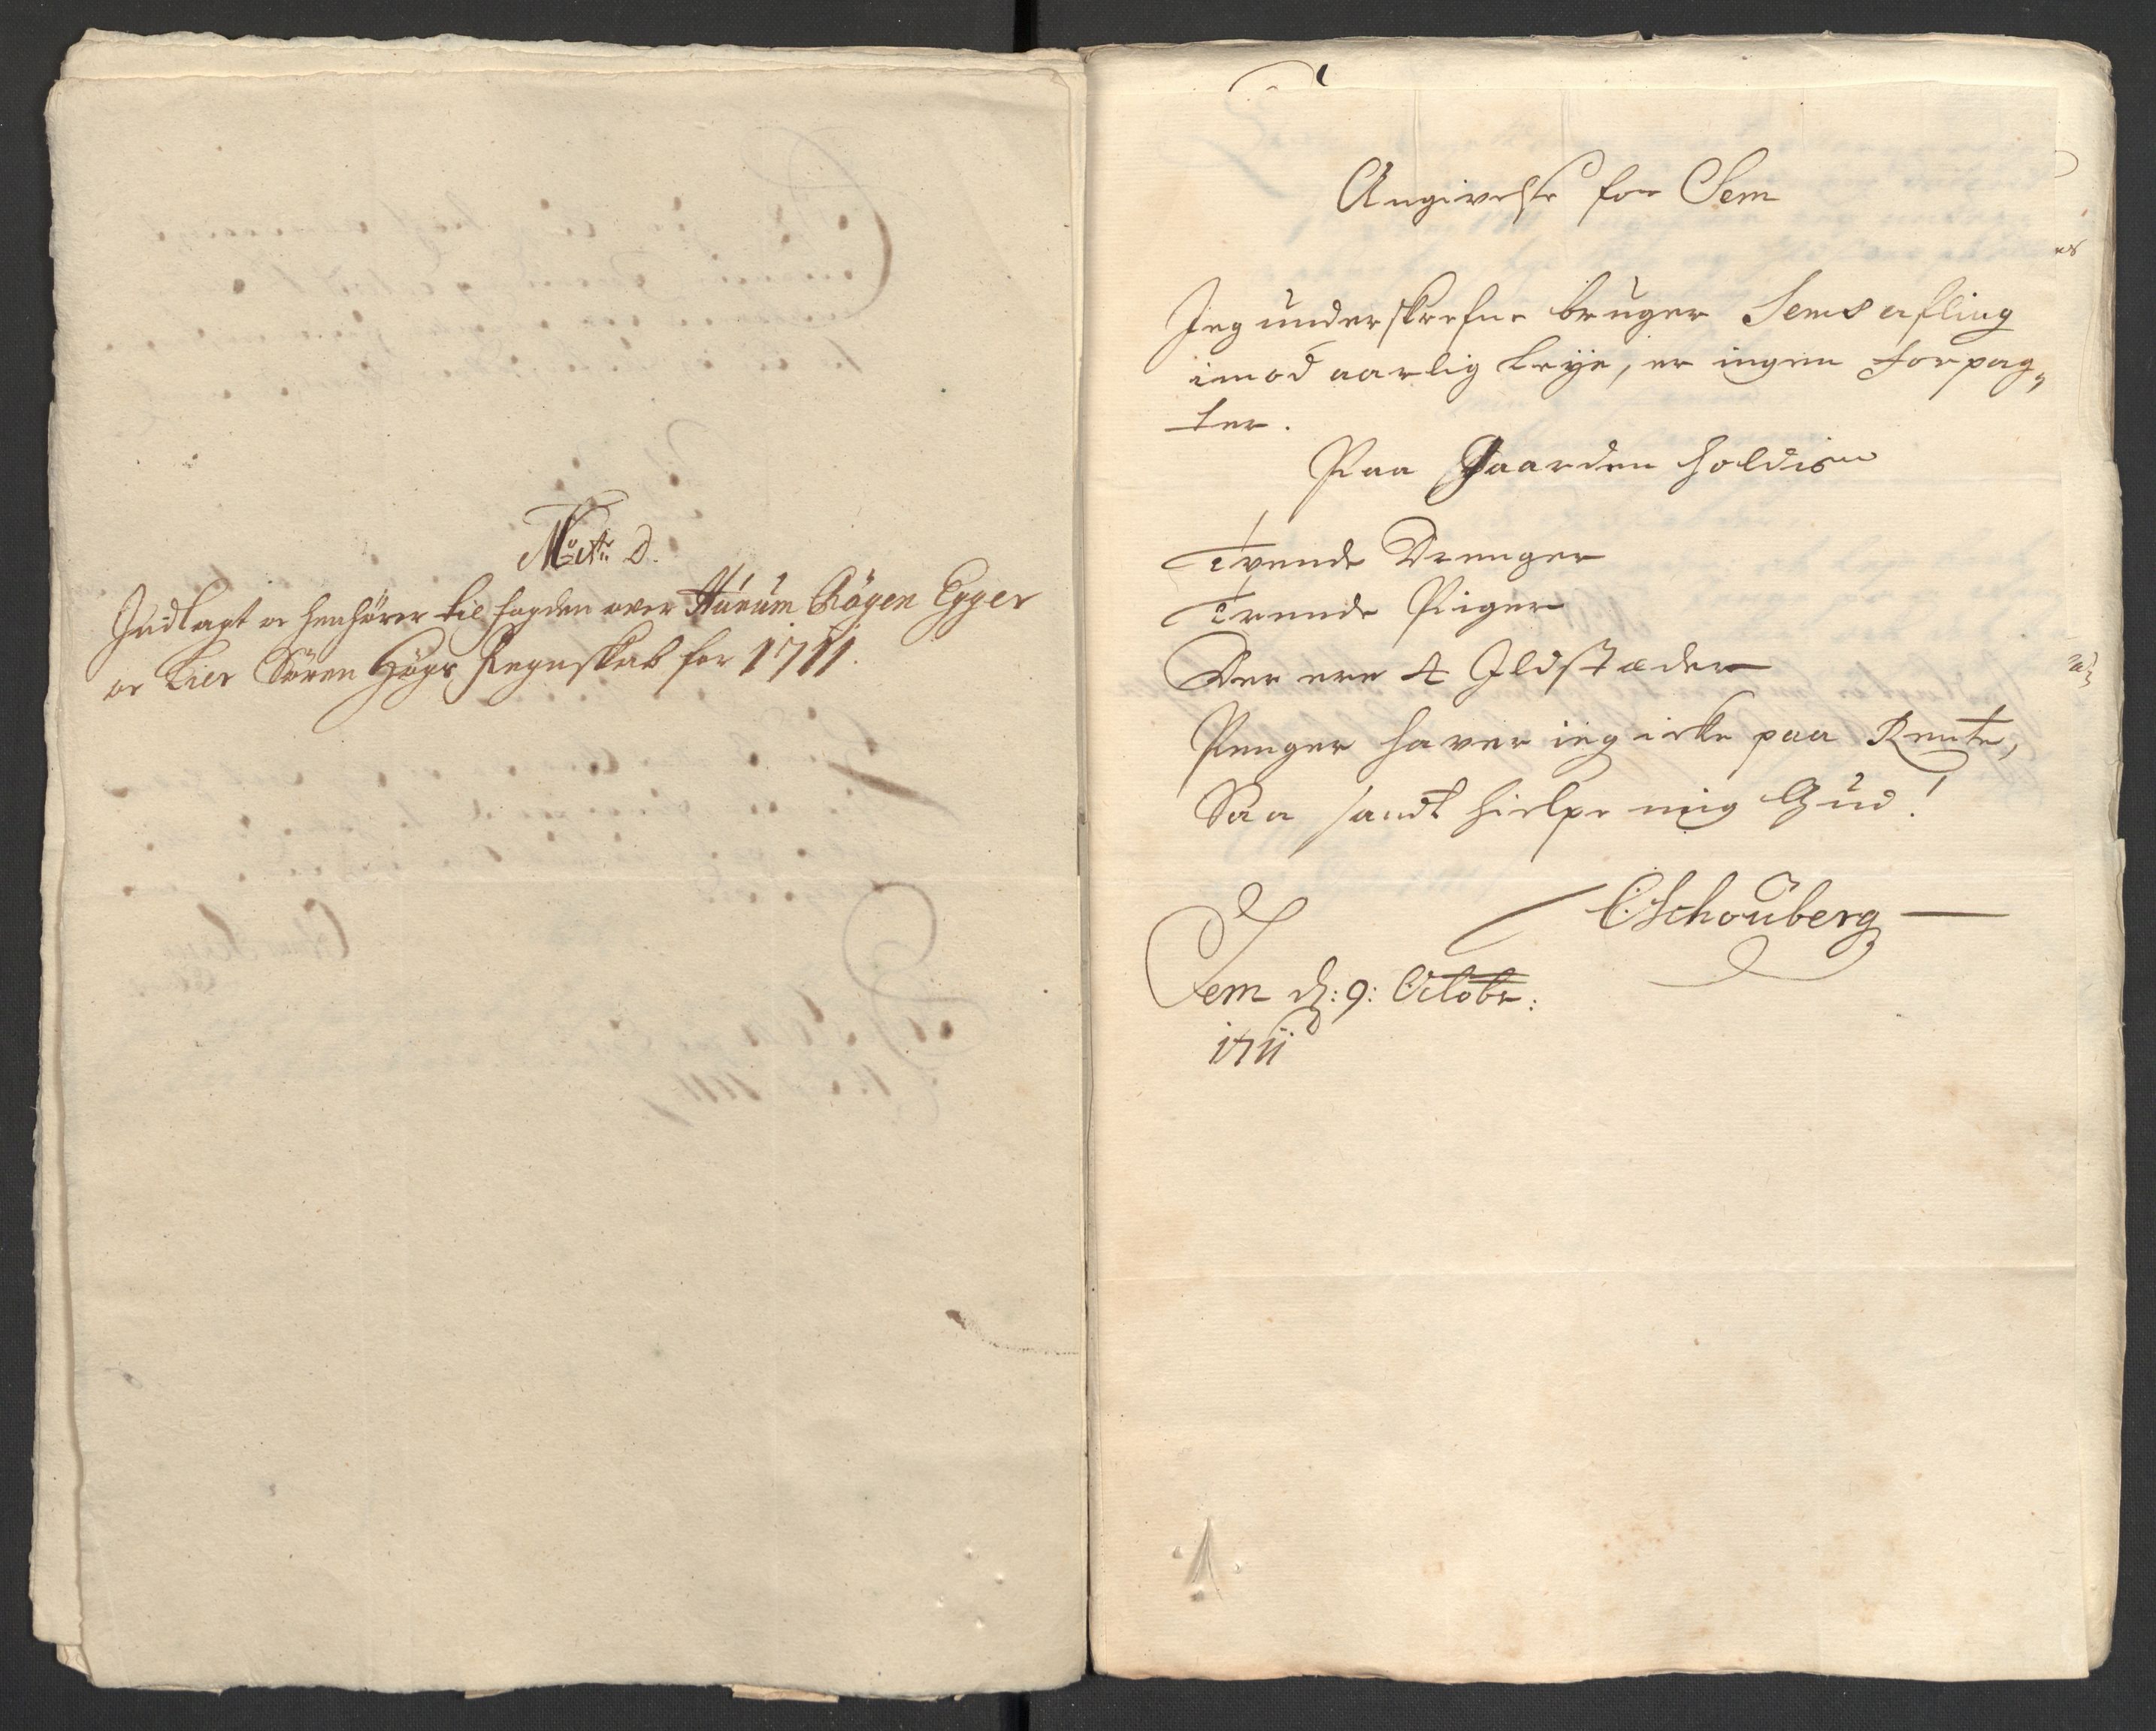 Indlagt oc henhører til fogden over Huuum Røgen Egger
oc Lier Søren Høgs Regnskab for 1711.
Angivelse for Sem
Jeg underskrefne bruger Sems afling
imod aarlig leye, er ingen Forpag„
ter.
Paa Gaarden holdis
Tvende Drenger
Trende Piger
Der ere 4 Ildstæder
Penger haver ieg icke paa Rente,
Saa sandt hielpe mig Gud!
CSchouberg
Sem d: 9: Octobr:
1711